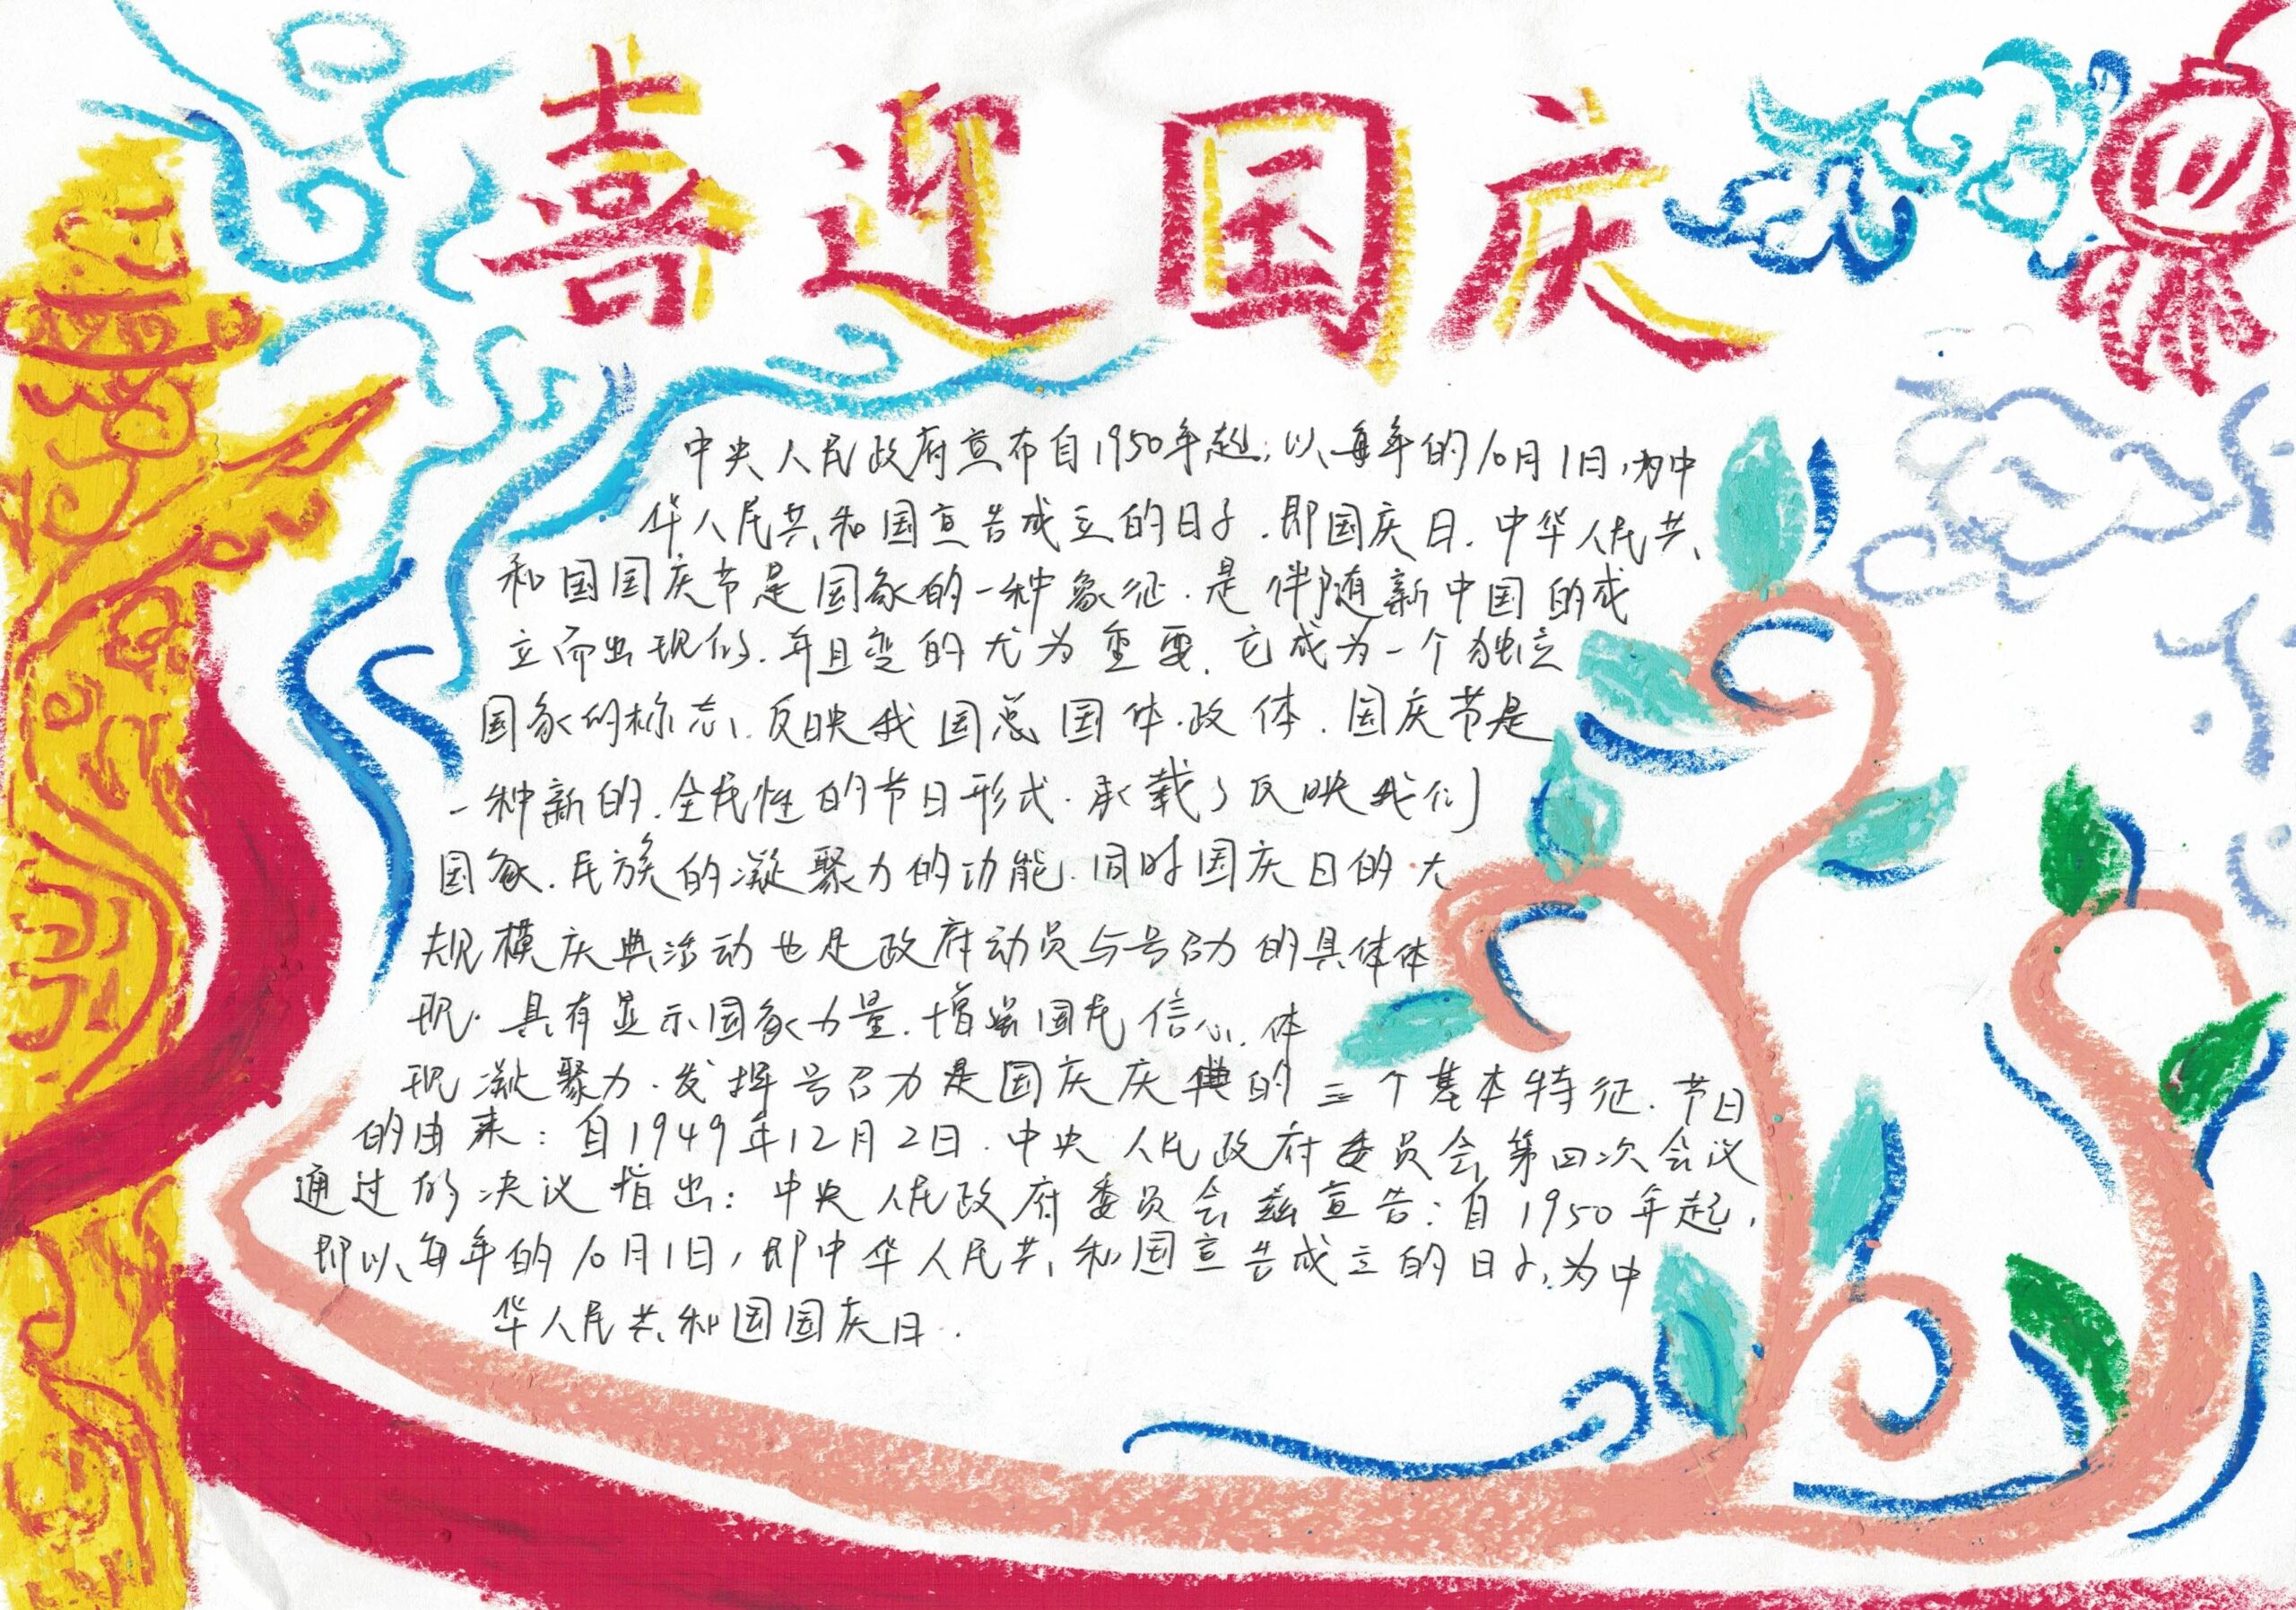 喜迎国庆
中央人民政府宣布自1950年起;以每年的10月1日,为中
华人民共和国宣告成立的日子.即国庆日.中华人民共
和国国庆节是国家的一种象征.是伴随新中国的成
立而出现的.并且变的尤为重要.它成为一个独立
国家的标志、反映我国总国体.政体.国庆节是
一种新的.全民性的节日形式.承载了反映我们
国家.民族的凝聚力的功能.同时国庆日的大
规模庆典活动也是政府动员与号召力的具体体
现.具有显示国家力量.增强国民信心.体
现凝聚力.发挥号召力是国庆庆典的三个基本特征.节日
的由来:自1949年12月2日.中央人民政府委员会第四次会议
通过的决议指出:中央人民政府委员会兹宣告:自1950年起,
即以每年的10月1日,即中华人民共和国宣告成立的日子,为中
华人民共和国国庆日.